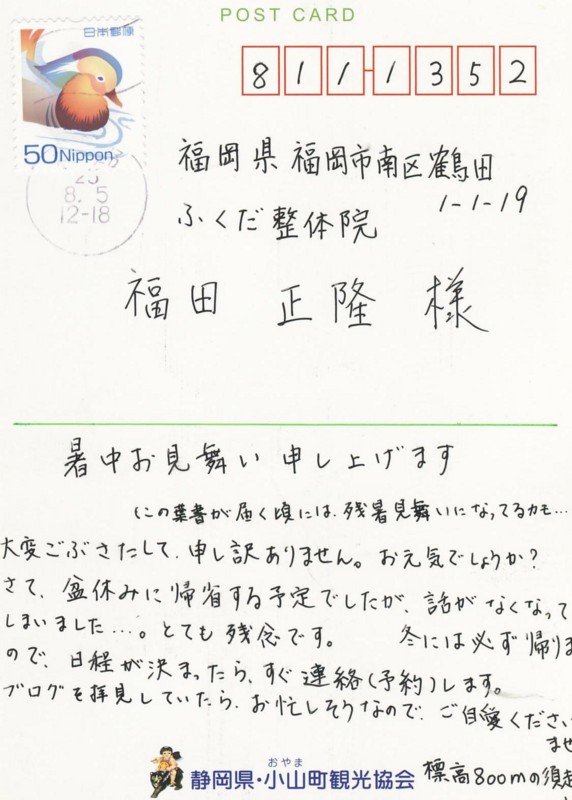 POST CARD
日本郵便
50Nippon
8. 5
12-18
811-1352
福岡県福岡市南区鶴田
1-1-19
ふくだ整体院
福田 正隆 様
暑中お見舞い申し上げます
(この葉書が届く頃には、残暑見舞いになってるカモ…
大変ごぶさたして、申し訳ありません。お元気でしょうか?
さて、盆休みに帰省する予定でしたが、話がなくなって
しまいました…。とても残念です。 冬には必ず帰りま
ので、日程が決まったら、すぐ連絡(予約)します。
ブログを拝見していたら、お忙しそうなので、ご自愛ください
ませ
おやま
静岡県・小山町観光協会
標高800mの須走